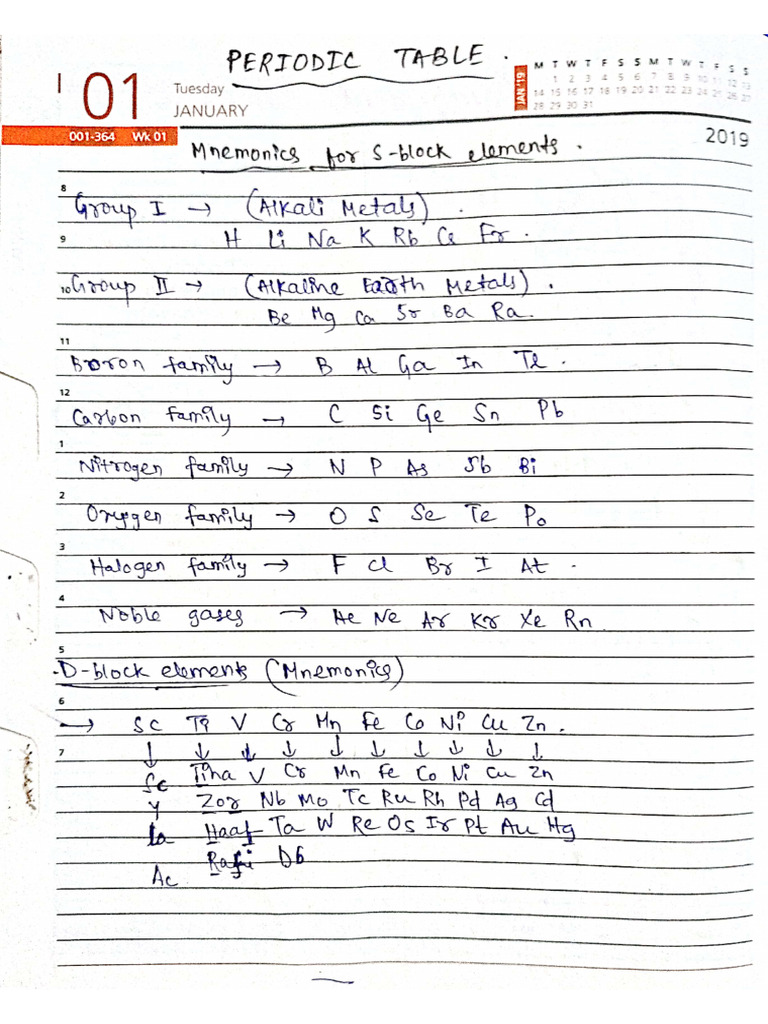 PERIODIC TABLE.
01 Tuesday JANUARY
JAN'19 M T W T F S S M T W T F S S
1 2 3 4 5 6 7 8 9 10 11 12 13
14 15 16 17 18 19 20 21 22 23 24 25 26 27
28 29 30 31
001-364 Wk 01
2019
Mnemonics for S-block elements.
8 Group I → (Alkali Metals).
9 H Li Na K Rb Cs Fr.
10 Group II → (Alkaline Earth Metals).
Be Mg Ca Sr Ba Ra.
11
Boron family → B Al Ga In Tl.
12
Carbon family → C Si Ge Sn Pb
1
Nitrogen family → N P As Sb Bi
2
Oxygen family → O S Se Te Po
3
Halogen family → F Cl Br I At.
4
Noble gases → He Ne Ar Kr Xe Rn
5
D-block elements (Mnemonics)
6
→ Sc Ti V Cr Mn Fe Co Ni Cu Zn.
7 ↓ ↓ ↓ ↓ ↓ ↓ ↓ ↓ ↓ ↓
Sc Tina V Cr Mn Fe Co Ni Cu Zn
Y Zor Nb Mo Tc Ru Rh Pd Ag Cd
la Haaf Ta W Re Os Ir Pt Au Hg
Ac Db